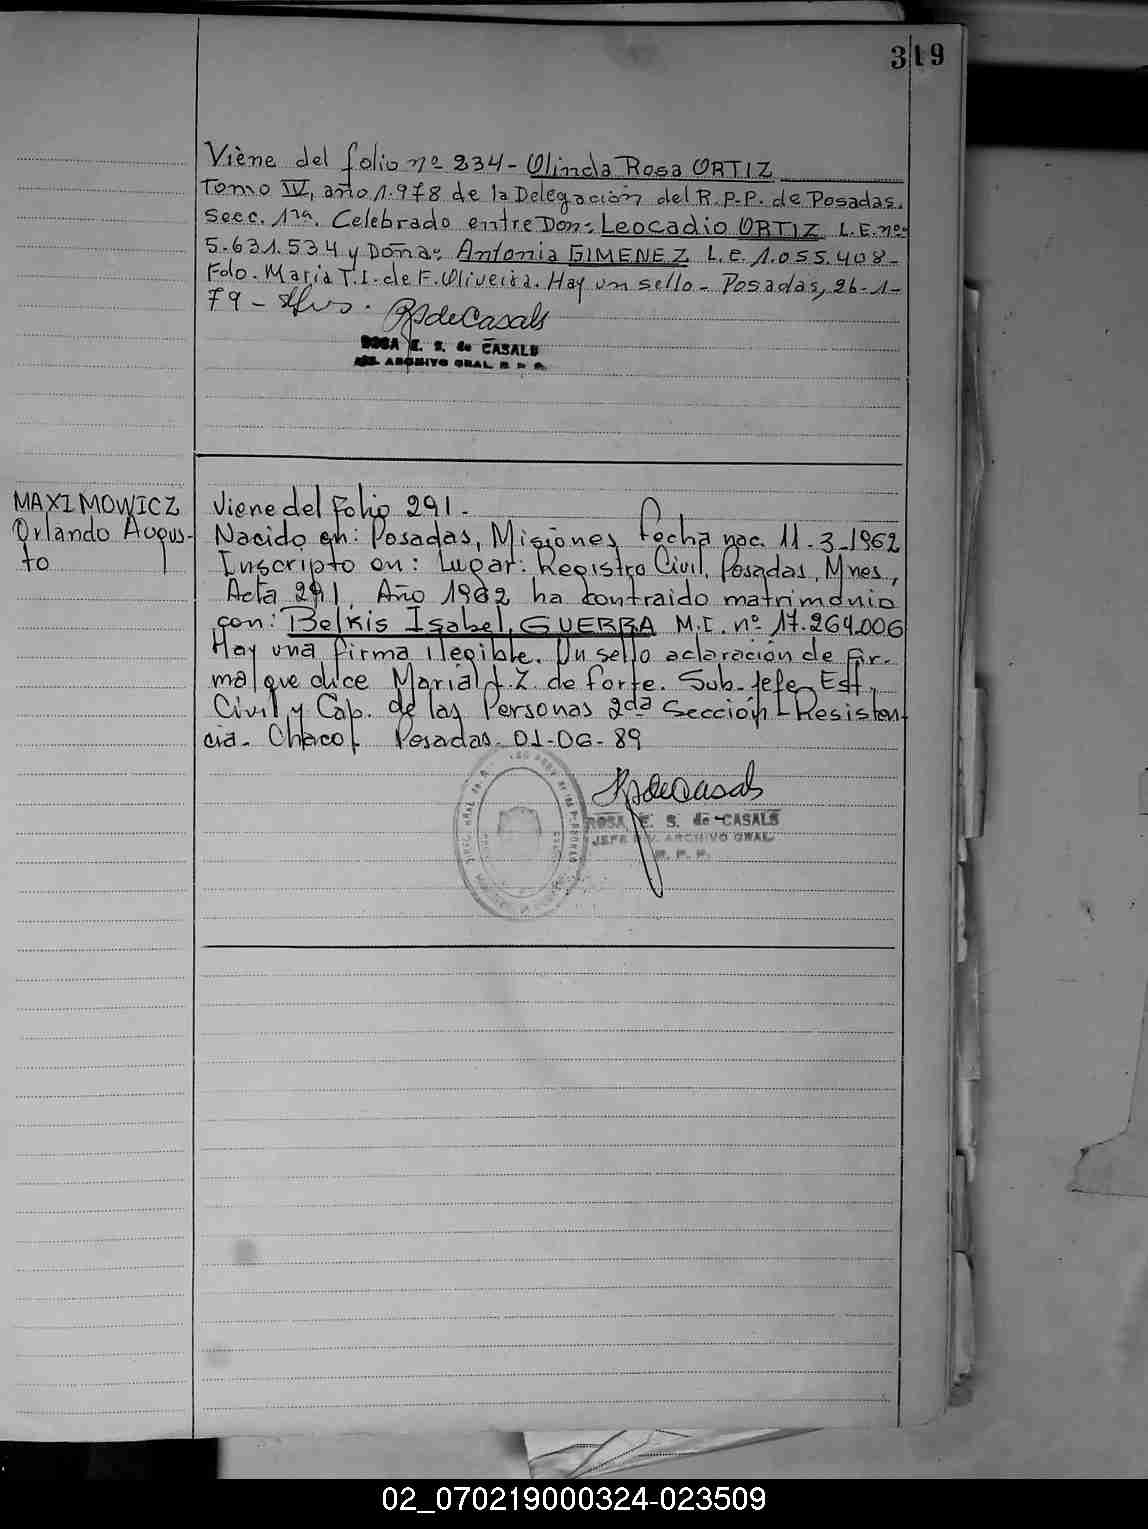 319
Viène del folio nº 234 - Olinda Rosa ORTIZ
Tomo IV, año 1.978 de la Delegación del R.P.P. de Posadas.
Secc. 1ra. Celebrado entre Don: Leocadio ORTIZ L.E. nº
5.631.534 y Doña: Antonia GIMENEZ L.e. 1.055.408-
Fdo. Maria T. I. de F. Oliveira. Hay un sello - Posadas, 26-1-
79 -
RSdeCasals
ROSA E. S. de CASALS
ARCHIVO GRAL R P P.
MAXIMOWICZ
Orlando Augus-
to
Viene del Folio 291.
Nacido en: Posadas, Misiones Fecha nac. 11-3-1962
Inscripto en: Lugar: Registro Civil, Posadas, Mnes,
Acta 291. Año 1962 ha contraido matrimonio
con: Belkis Isabel, GUERRA M.I. nº 17.264.006
Hay una firma ilegible. Un sello aclaración de fir-
ma que dice Maria L. Z. de Forte. Sub-Jefe Est.
Civil y Cap. de las Personas 2da Sección - Resisten-
cia - Chaco. Posadas 01-06-89
RSdeCasals
ROSA E. S. de CASALS
JEFE DIV. ARCHIVO GRAL.
R. P. P.
02_070219000324-023509